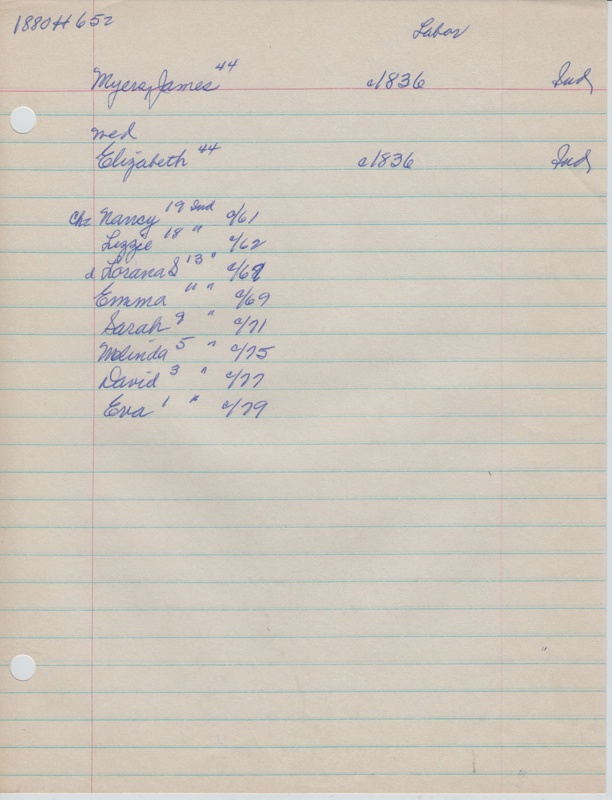 1880 H 652
Labor
Myers, James 44 c1836 Ind
wed
Elizabeth 44 c1836 Ind
Ch: Nancy 19 Ind c/61
Lizzie 18 " c/62
d Lorana S 13 "
Emma 11 " c/69
Sarah 9 " c/71
Melinda 5 " c/75
David 3 " c/77
Eva 1 " c/79